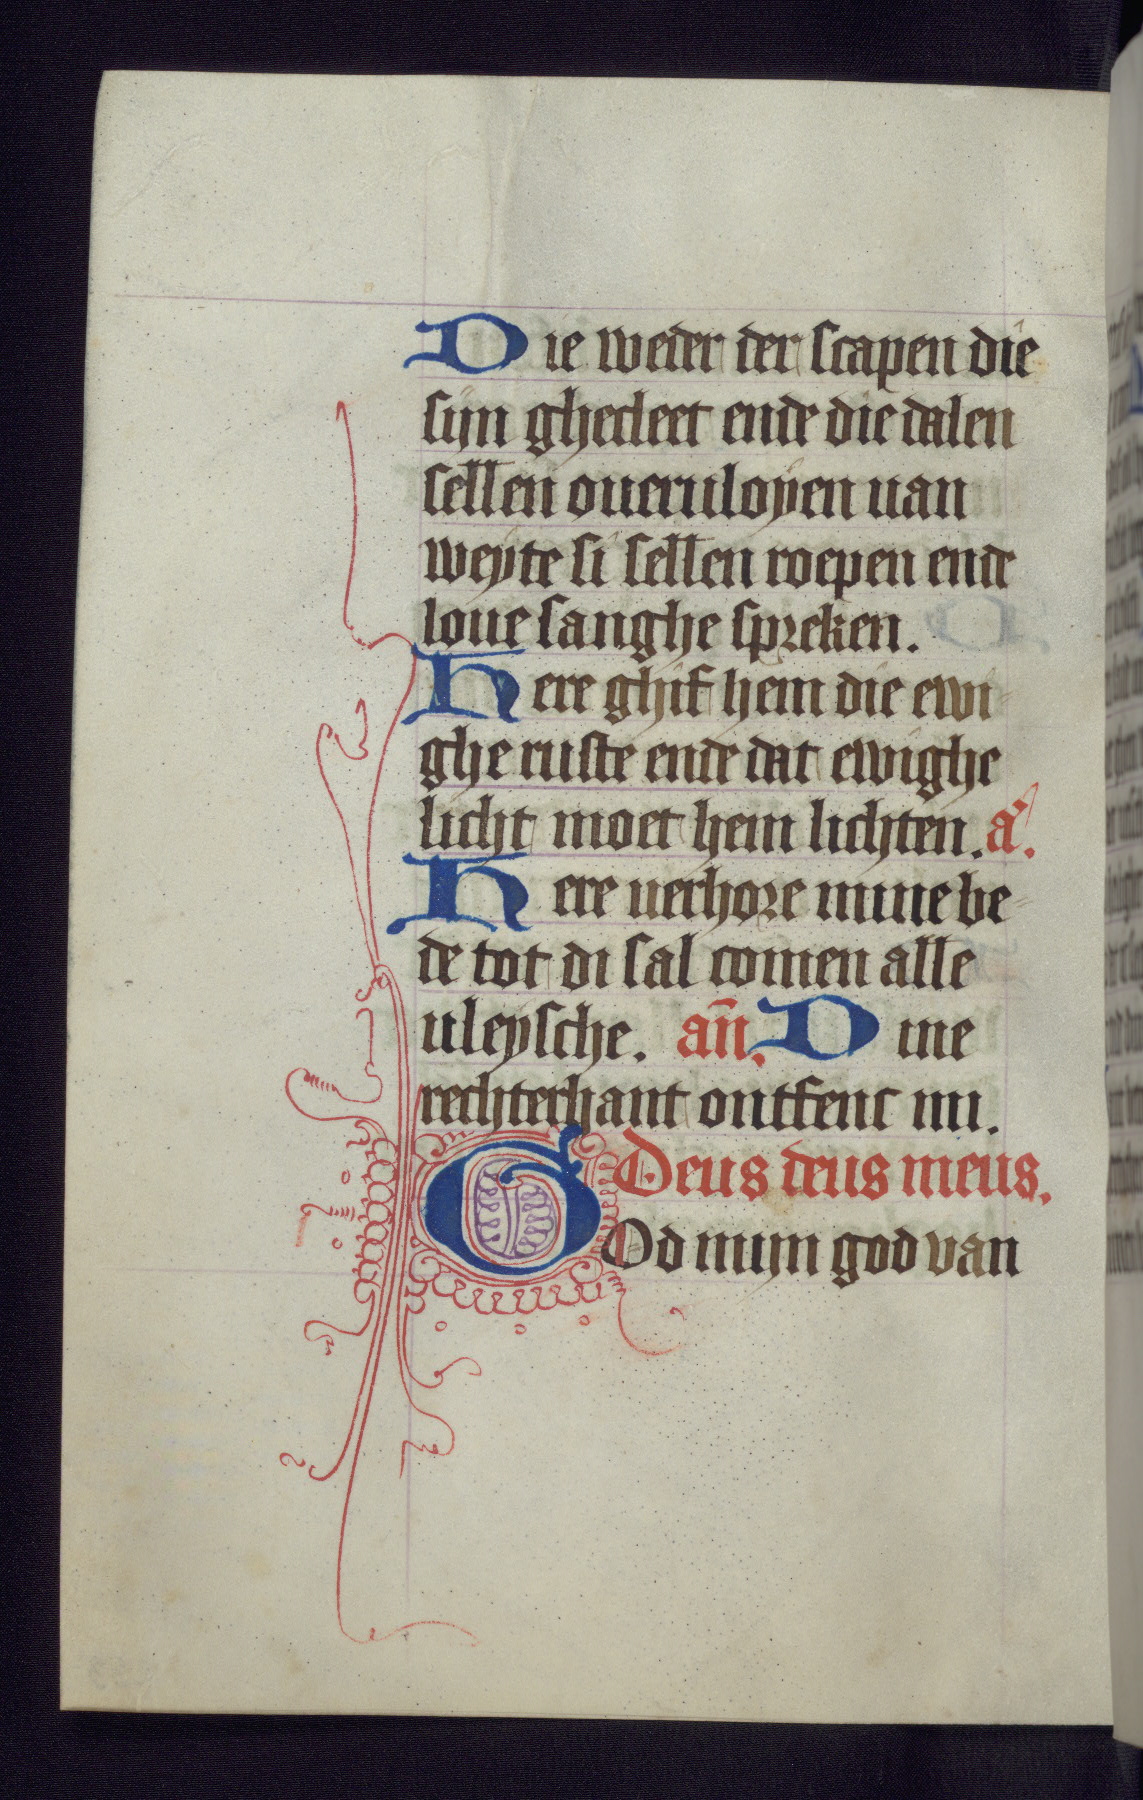 Die weder der scapen die
sijn ghecleet ende die dalen
sellen oueruloyen uan
weyte si sellen roepen ende
loue sanghe spreken.
Here ghif hem die ewi
ghe ruste ende dat ewighe
licht moet hem lichten. a.
Here uerhore mine be
de tot di sal comen alle
uleysche. an̄. Dine
rechterhant ontfenc mi.
Deus deus meus.
GOd mijn god van